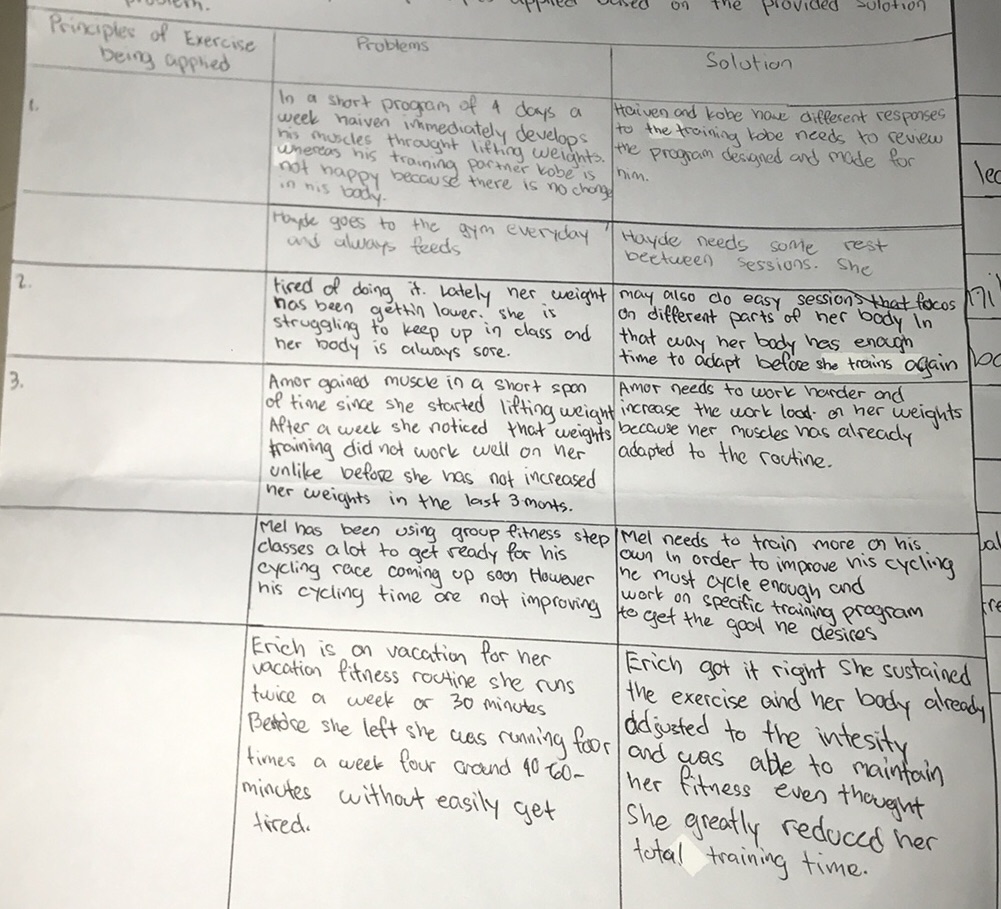 problem.
applied based on the provided solution
Principles of Exercise
being applied
Problems
Solution
1.
In a short program of 4 days a
week haiven immediately develops
his muscles throught lifting weights.
whereas his training partner kobe is
not happy because there is no change
in his body.
Haiven and kobe have different responses
to the training kobe needs to review
the program designed and made for
him.
Hayde goes to the gym everyday
and always feeds
Hayde needs some rest
beetween sessions. She
2.
tired of doing it. Lately her weight
has been gettin lower. she is
struggling to keep up in class and
her body is always sore.
may also do easy sessions that focos
on different parts of her body In
that way her body has enough
time to adapt before she trains again
3.
Amor gained muscle in a short span
of time since she started lifting weight
After a week she noticed that weights
training did not work well on her
unlike before she has not increased
her weights in the last 3 monts.
Amor needs to work harder and
increase the work load on her weights
because her muscles has already
adapted to the routine.
Mel has been using group fitness step
classes a lot to get ready for his
cycling race coming up soon However
his cycling time are not improving
Mel needs to train more on his
own In order to improve his cycling
he must cycle enough and
work on specific training program
to get the goal he desires
Erich is on vacation for her
vacation fitness routine she runs
twice a week or 30 minutes
Before she left she was running foor
times a week four around 40-60-
minutes without easily get
tired.
Erich got it right She sustained
the exercise aind her body already
adjusted to the intesity
and was able to maintain
her fitness even thought
She greatly reduced her
total training time.